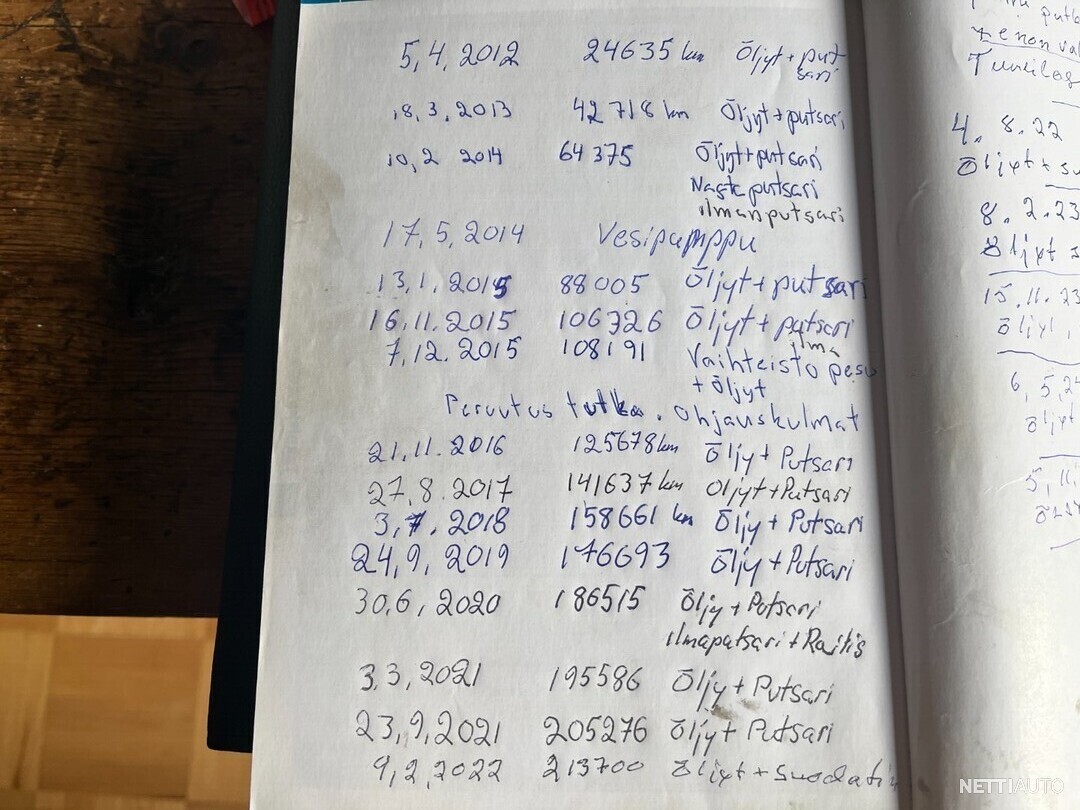 5.4.2012 24635 km Öljyt + put
sari
18.3.2013 42718 km Öljyt + putsari
10.2 2014 64375 Öljyt + putsari
Naste putsari
ilman putsari
17.5.2014 Vesipumppu
13.1.2015 88005 Öljyt + putsari
16.11.2015 106326 Öljyt + putsari
ilma
7.12.2015 108191 Vaihteisto pesu
+ öljyt
Peruutus tutka. Ohjauskulmat
21.11.2016 125678 km Öljy + Putsari
27.8.2017 141637 km Öljyt + Putsari
3.7.2018 158661 km Öljy + Putsari
24.9.2019 176693 Öljy + Putsari
30.6.2020 186515 Öljy + Putsari
ilmaputsari + Raitis
3.3.2021 195586 Öljy + Putsari
23.9.2021 205276 Öljyt + Putsari
9.2.2022 213700 Öljyt + Suodatin
4.8.22
Öljyt + su
8.2.23
Öljyt s
15.11.23
Öljy
6.5.24
Öljyt
5.11.
NETTIAUTO